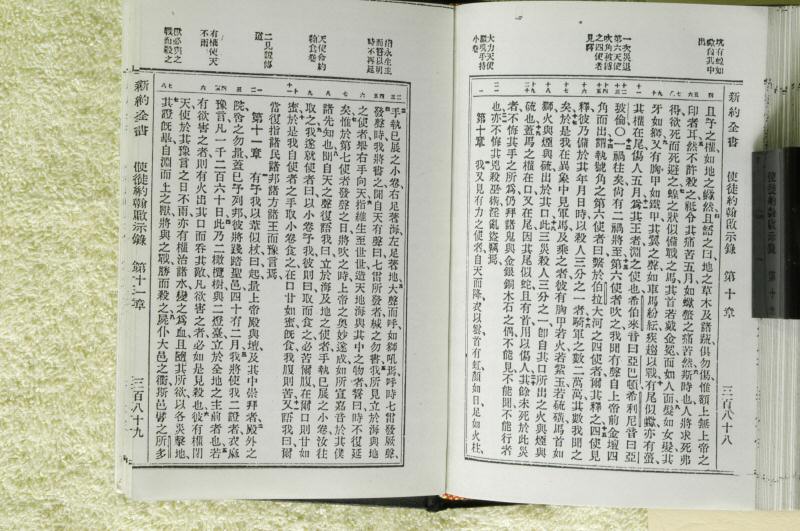 新約全書 使徒約翰啟示錄 第十章 三百八十八
坑有蝗如
蠍自其中
出
一次災退
第六天使
吹角被縛
之四使者
見釋
大力天使
顯現手持
小卷
且予之權如地之蠍然且語之曰地之草木及諸蔬俱勿傷惟額上無上帝之
印者耳然不許殺之祗令其痛苦五月如蠍螫之痛苦然斯時也人將求死弗
得欲死而死避之蝗之狀似備戰之馬其首若戴金冕而如人面髮如女髮其
牙如獅又有胸甲如鐵甲其翼之聲如車馬紛紜疾趨以戰有尾似蠍亦有螫
其權在尾傷人五月為其王者淵之使也希伯來音曰亞巴頓希利尼音曰亞
玻倫○一禍往矣尚有二禍將至第六使者吹之我聞有聲自上帝前金壇四
角而出謂執號角之第六使者曰繫於伯拉大河之四使者爾其釋之四使見
釋彼乃備於其年月日時以殺人三分之一者騎軍之數二萬萬其數我聞之
矣於是我在異象中見軍馬及乘之者彼有胸甲若火若紫玉若硫磺馬首如
獅火與煙與硫出於其口此三災殺人三分之一卽自其口所出之火與煙與
硫也蓋馬之權在口又在尾因其尾似蛇且有首用以傷人其餘未死於此災
者不悔其手之所為仍拜諸鬼與金銀銅木石之偶不能見不能聞不能行者
也亦不悔其兇殺惡術淫亂盜竊焉
第十章 我又見有力之使者自天而降衣以雲首有虹顏如日足如火柱
指永生主
而誓以明
時不再延
天使命約
翰食卷
二見證傳
道
有權使天
不雨
獸必與之
戰而殺之
手執已展之小卷右足著海左足著地大聲而呼如獅吼焉呼時七雷發厥聲
發聲時我將書之聞自天有聲曰七雷所發者緘之勿書我所見立於海與地
之使者舉右手向天指維生至世世造天地海與其中之物者誓曰時不復延
矣惟於第七使者發聲之日將吹之時上帝之奧妙遂成如所宣嘉音於其僕
諸先知也聞自天之聲復語我曰立於海及地之使者手執已展之小卷汝往
取之我遂就使者曰以小卷予我彼則曰取而食之必苦爾腹在爾口則甘如
蜜於是我自使者之手取小卷食之在口甘如蜜旣食我腹則苦又語我曰爾
當復指諸民諸邦諸方諸王而豫言焉
第十一章 有予我以葦似杖曰起量上帝殿與壇及其中崇拜者殿外之
院舍之勿量蓋已予列邦彼將踐踏聖邑四十有二月我將使我二證者衣麻
豫言凡一千二百六十日此乃二橄欖樹與二燈臺立於全地之主前者也若
有欲害之者則有火出其口而吞其敵凡欲害之者必如是見殺也彼有權閉
天使於其豫言之日不雨亦有權治諸水變之為血且隨其所欲以各災擊地
其證旣畢自淵而上之獸將與之戰勝而殺之屍仆大邑之衢斯邑譬之所多
新約全書 使徒約翰啟示錄 第十一章 三百八十九